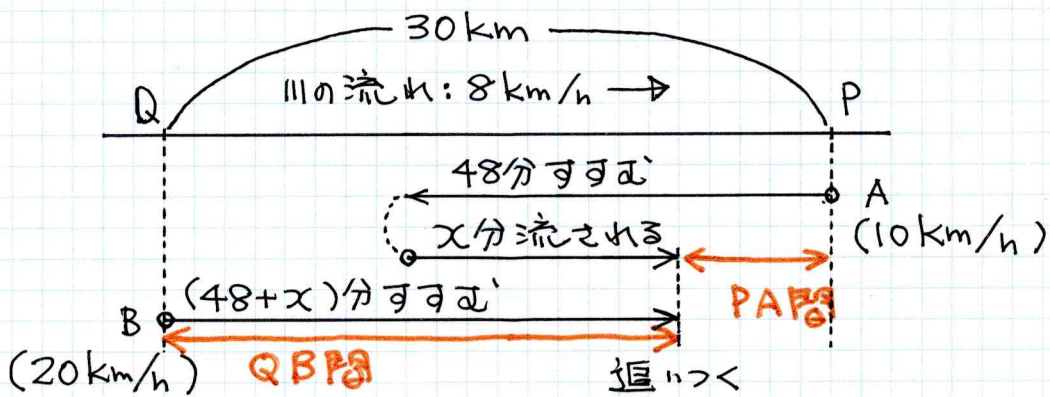 30km
川の流れ:8km/h →
Q
P
48分すすむ
A
(10km/h)
x分流される
PA間
B
(48+x)分すすむ
(20km/h)
QB間
追いつく